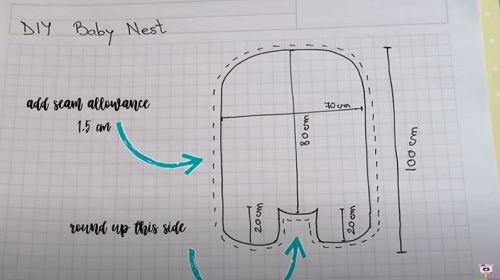 DIY Baby Nest
add seam allowance
1.5 cm
70 cm
80 cm
100 cm
20 cm
20 cm
round up this side